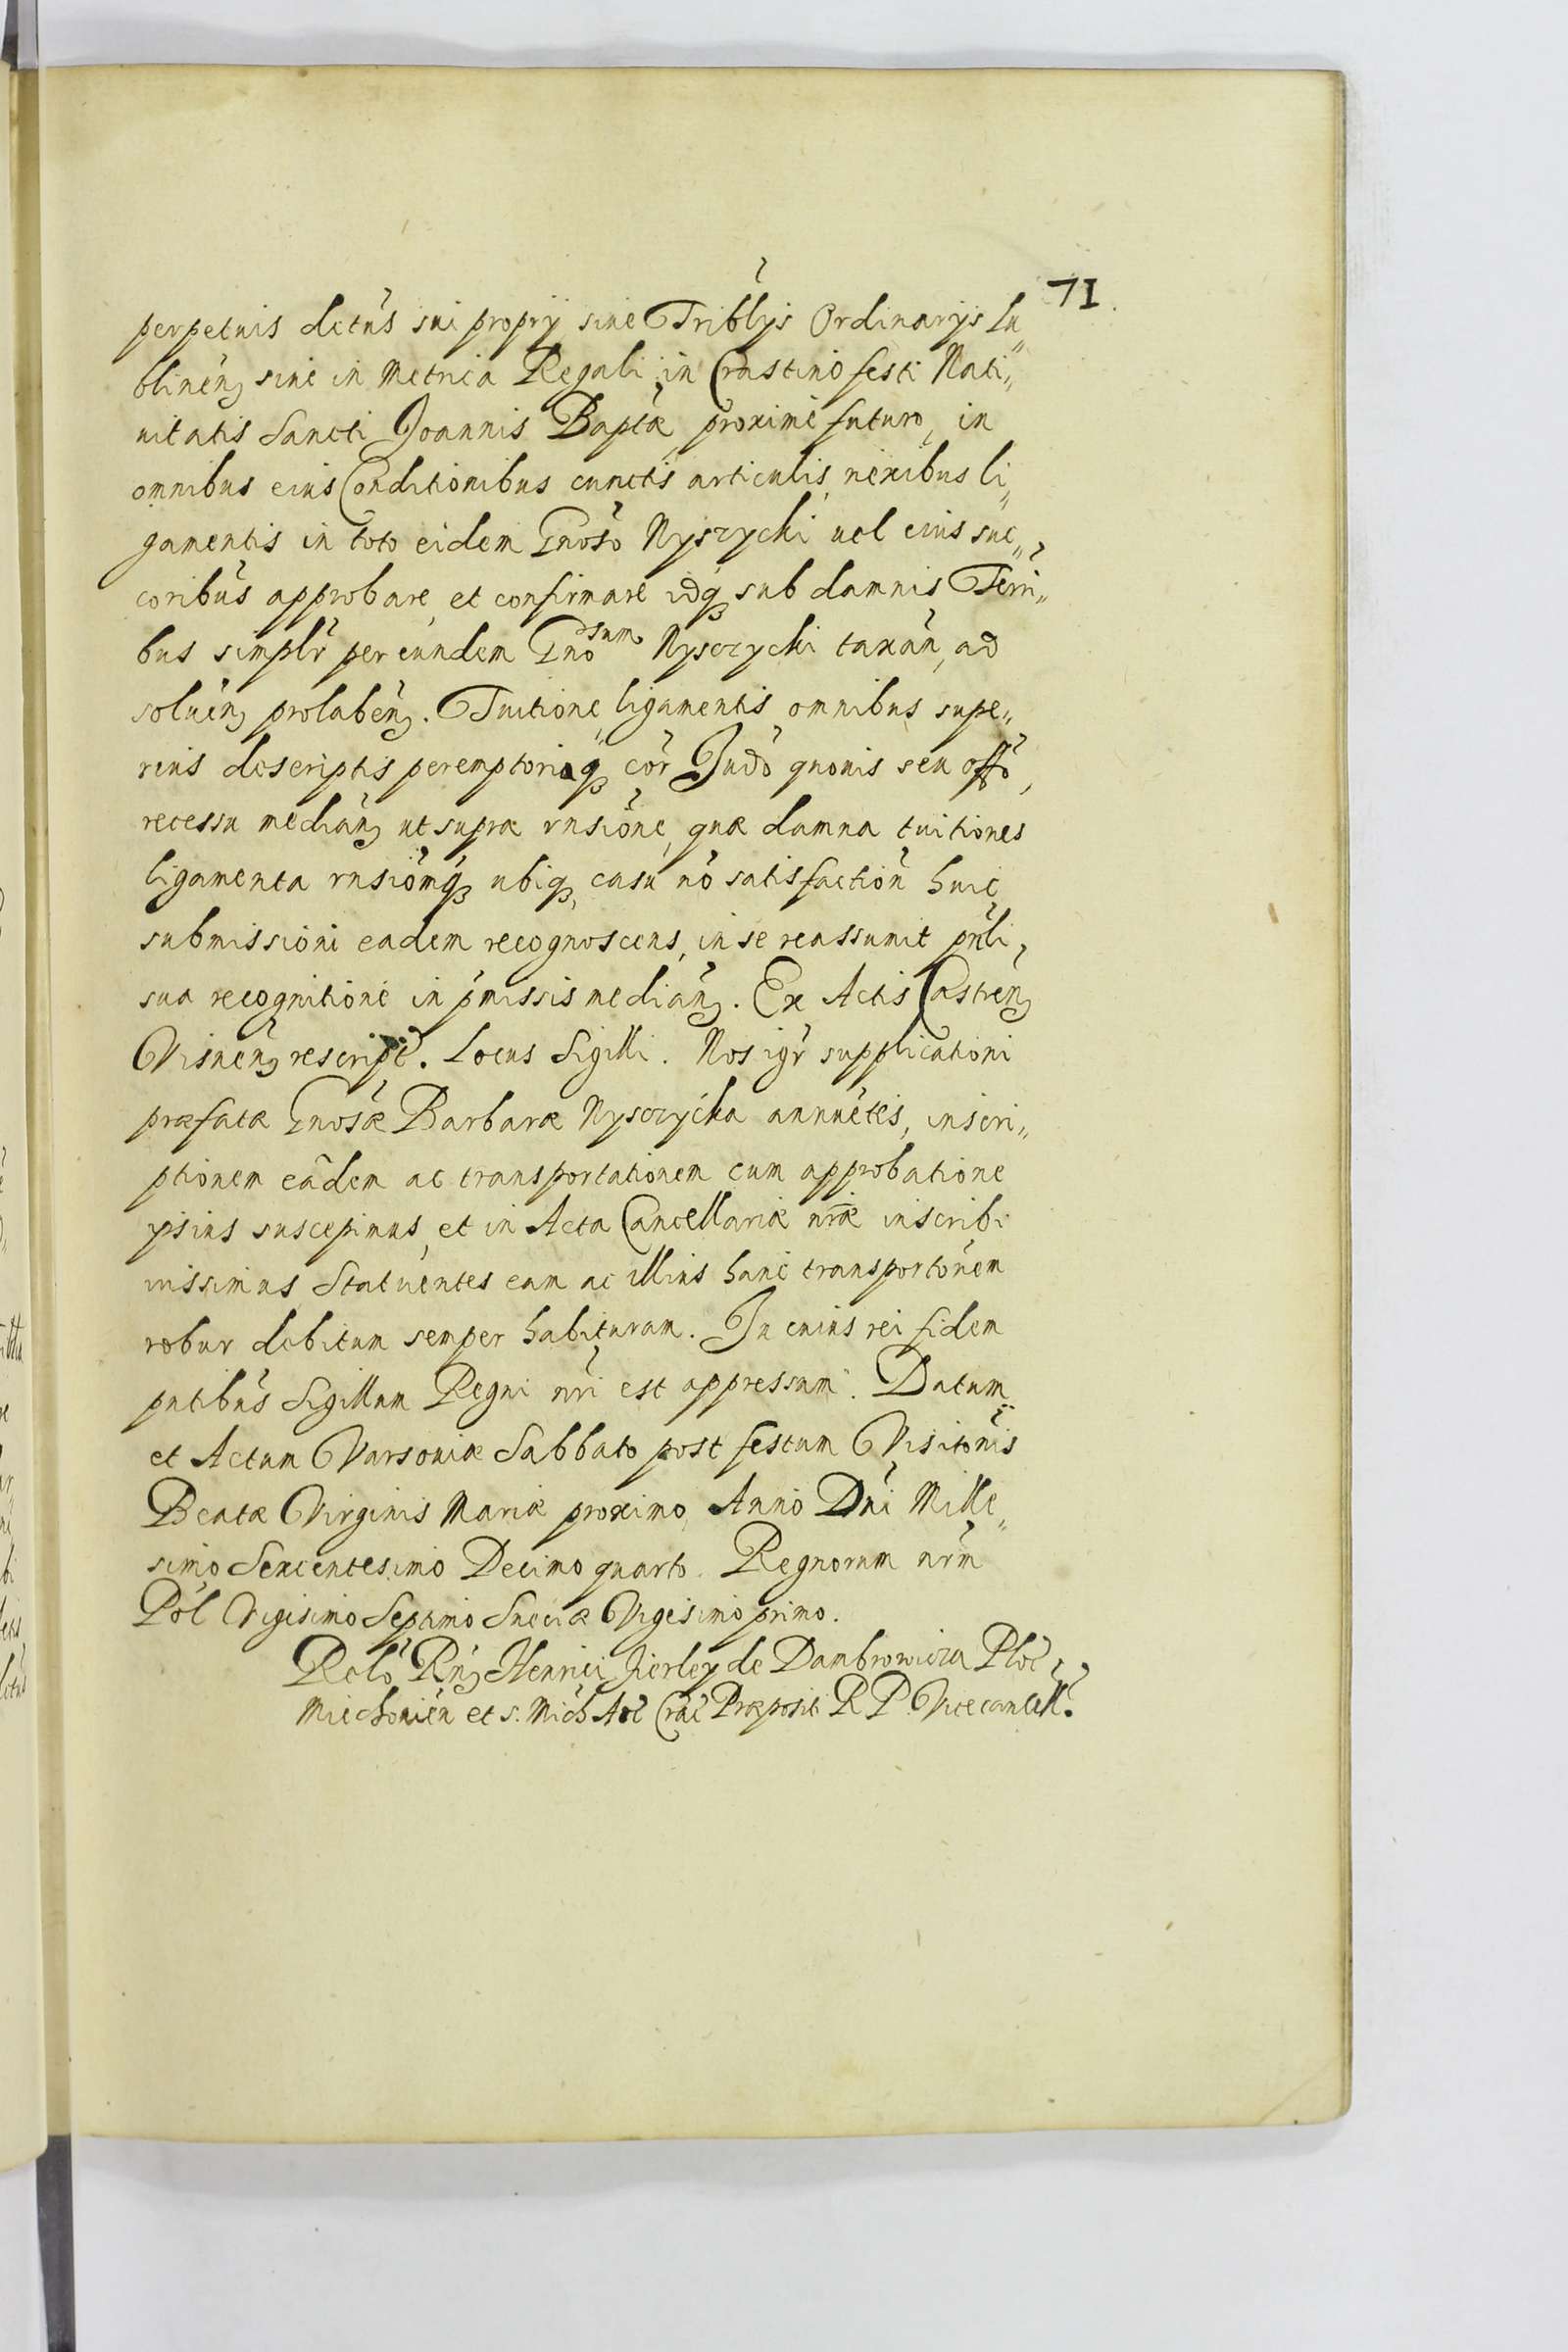 71.
perpetuis dictus sui proprij siue Triblijs Ordinarijs Lu„
blinen siue in Metrica Regali in Crastino festi Nati„
uitatis Sancti Joannis Baptæ proxime futuro, in
omnibus eius Conditionibus cunctis articulis nexibus li„
gamentis in toto eidem Gnoso Nysczycki uel eius suc„
coribus approbare et confirmare idq sub damnis Terri„
bus simplr per eundem Gnosum Nysczycki taxan, ad
soluen prolaben. Tuitione ligamentis omnibus supe„
rius descriptis peremptoriaq cor Judo quouis seu offo,
recessu median ut supra rnsione, quæ damna tuitiones
ligamenta rnsionnq ubiq, casu no satisfaction huic
submissioni eadem recognoscens, in se reassumit pnli
sua recognitione in pmissis median. Ex Actis Castren
Visnen rescript. Locus Sigilli. Nos igr supplicationi
præfatæ Gnosæ Barbaræ Nysczycka annuetes, inscri„
ptionem eadem ac transportationem cum approbatione
ipsius suscepimus, et in Acta Cancellariæ nræ inscribi
iussimus Statuentes eam ac illius hanc transportonem
robur debitum semper habituram. In cuius rei fidem
pntibus Sigillum Regni nri est appressum. Datum
et Actum Varsouiæ Sabbato post festum Visitonis
Beatæ Virginis Mariæ proximo, Anno Dni Mille„
simo Sexcentesimo Decimo quarto. Regnorum nrm
Pol Vigisimo Septimo Sueciæ Vigesimo primo.
Relo Rn Henrici Firley de Dambrowicza Ploc
Miechouien et S. Mich Arc Crac Præposit R P. Vicecancell.